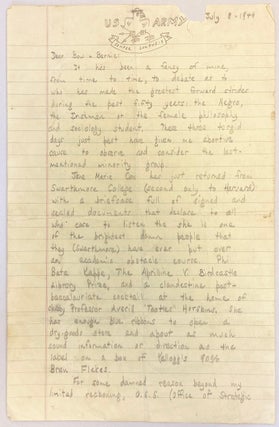 U.S. ARMY
July 8 - 1944
Dear Bow & Bernie:
It has been a fancy of mine,
from time to time, to debate as to
who has made the greatest forward strides
during the past fifty years: the Negro,
the Irishman or the female philosophy
and sociology student. These three torrid
days just past have given me abortive
cause to observe and consider the last-
mentioned minority group.
Jane Marie Cox has just returned from
Swarthmore College (second only to Harvard)
with a briefcase full of signed and
sealed documents that declare to all
who care to listen that she is one
of the brightest damn people that
they (Swarthmore) have ever put over
an academic obstacle course. Phi
Beta Kappa, The Apriline V. Birdcastle
Library Prize, and a clandestine post-
baccalaureate cocktail at the home of
Professor Averil Toothes Horskins. She
has enough blue ribbons to open a
dry-goods store and about as much
sound information or direction as the
label on a box of Kellogg's
Bran Flakes.
For some damned reason beyond my
limited reckoning, O.S.S. (Office of Strategic